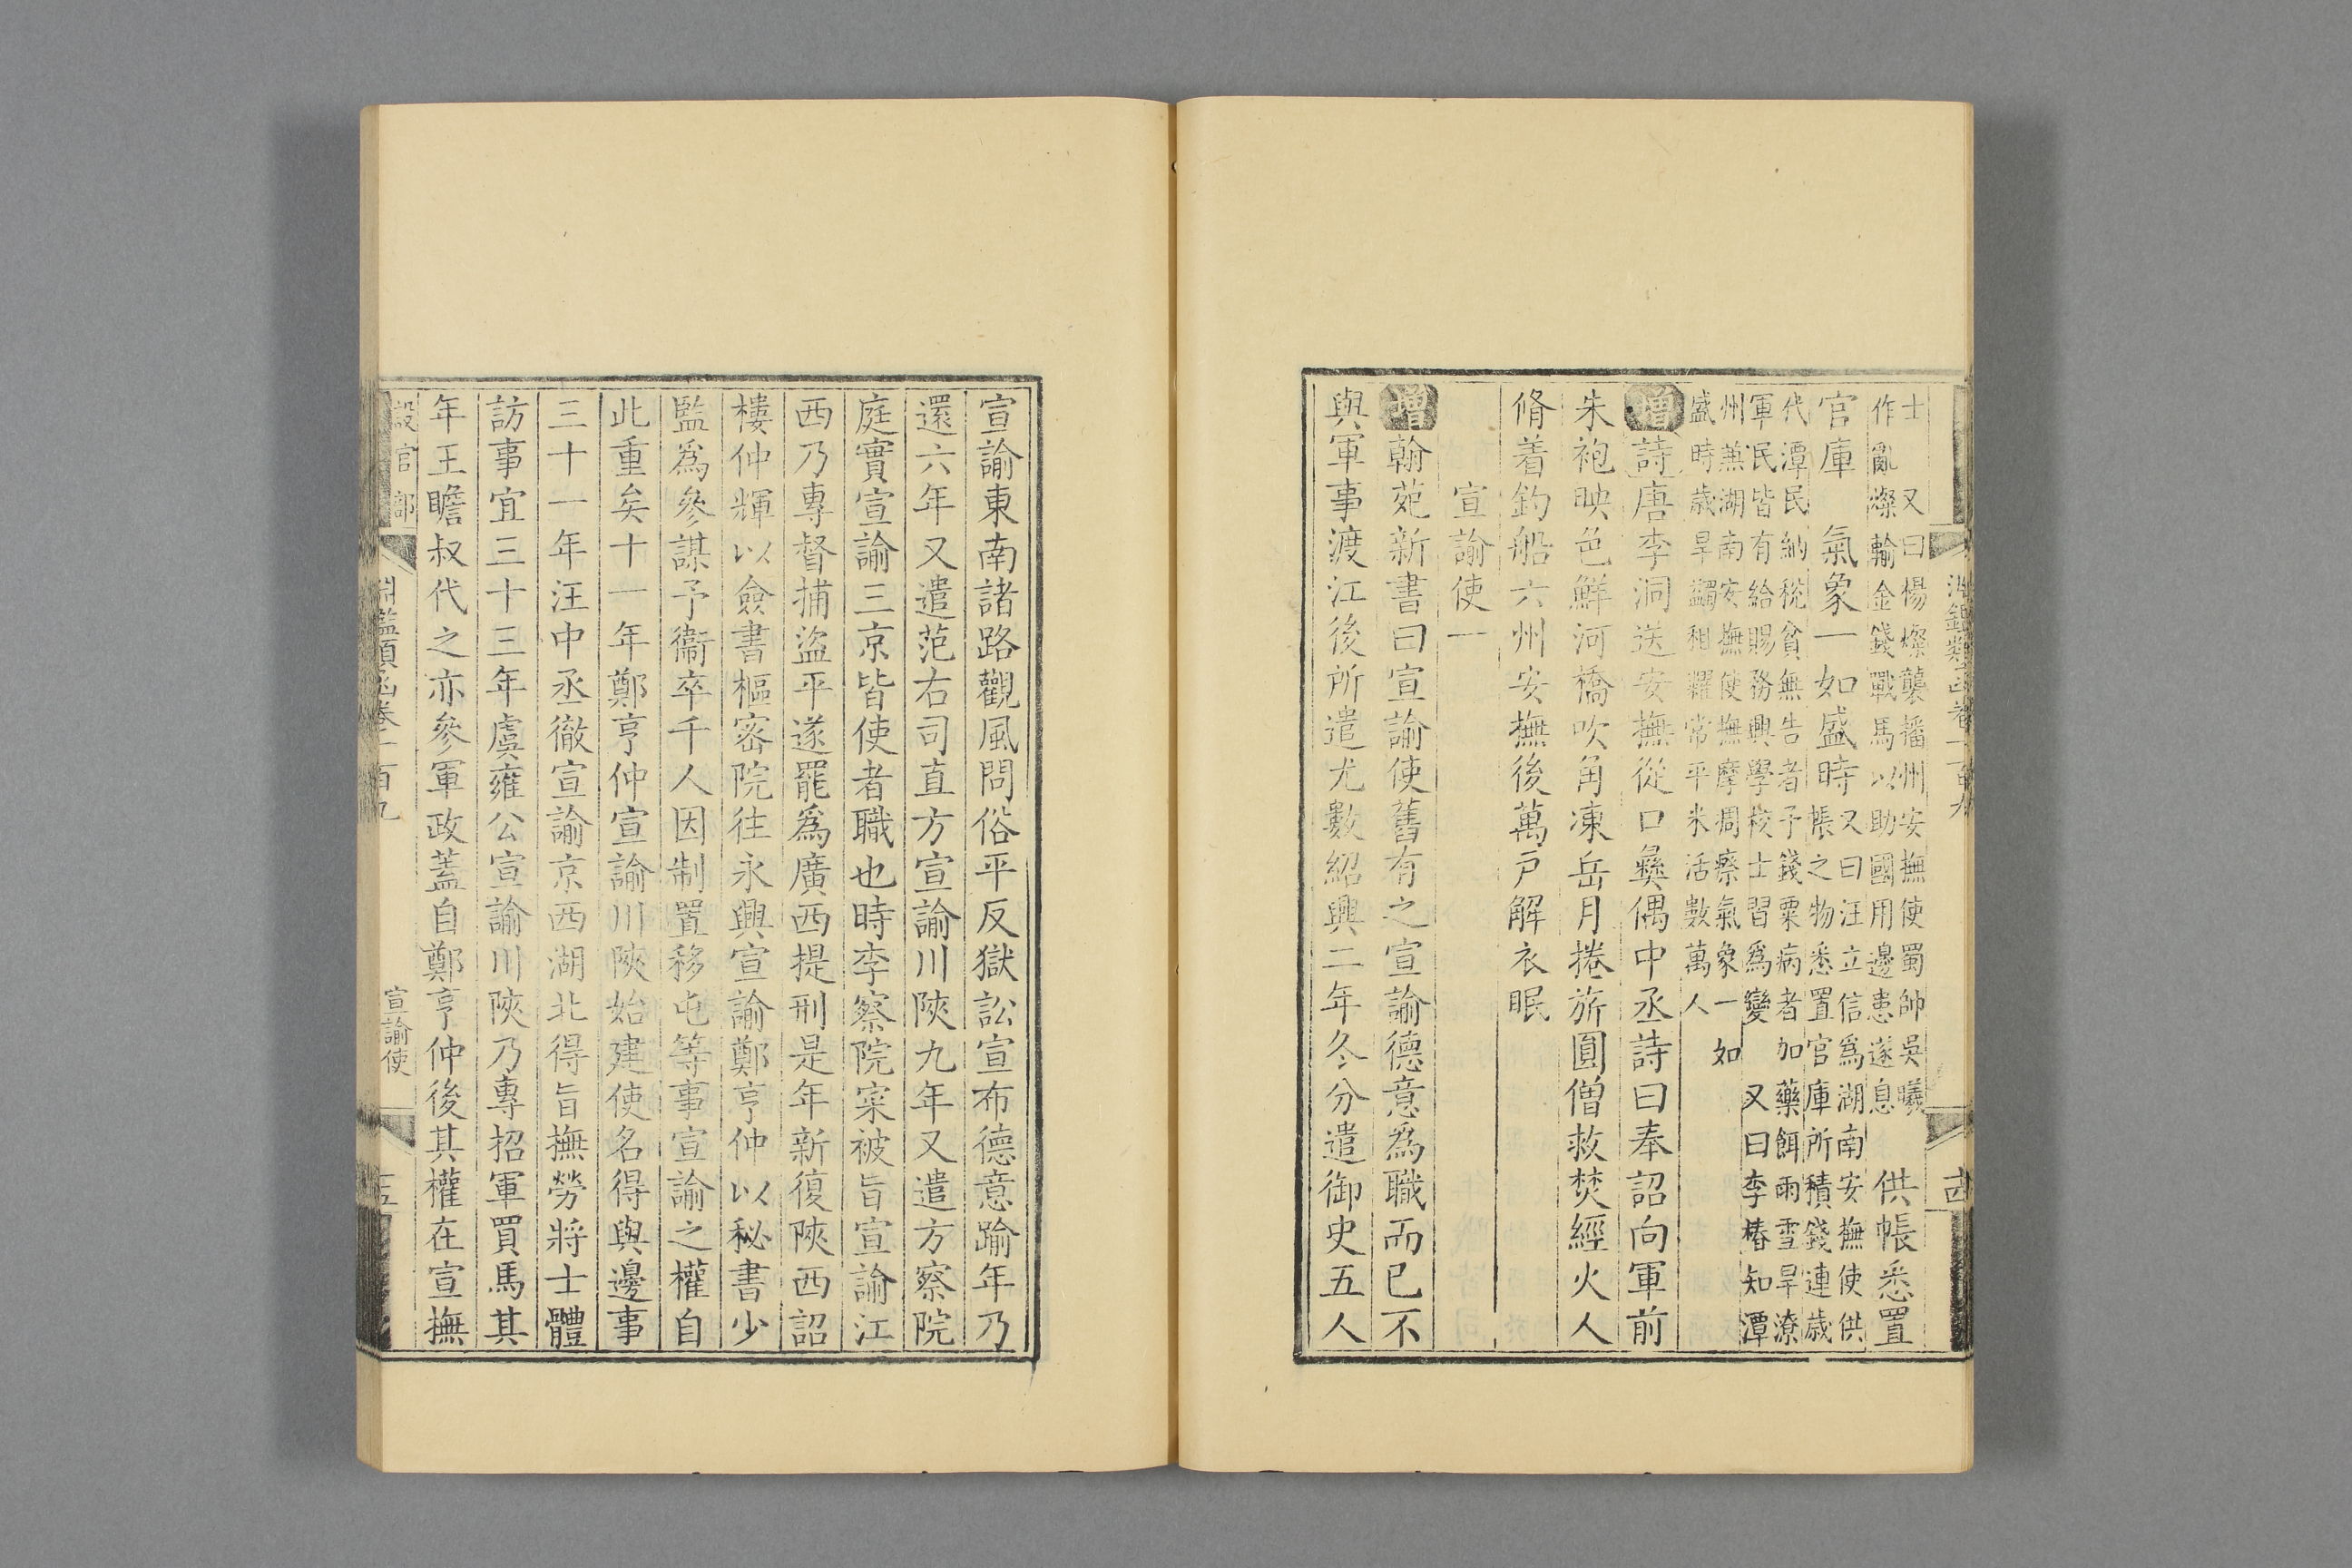 士 又曰楊燦襲播州安撫使蜀帥吳曦
作亂燦輸金錢戰馬以助國用邊患遂息 供帳悉置
官庫 氣象一如盛時 又曰汪立信爲湖南安撫使供
帳之物悉置官庫所積錢連歲
代潭民納稅貧無告者予錢粟病者加藥餌雨雪旱潦
軍民皆有給賜務興學校士習爲變 又曰李椿知潭
州兼湖南安撫使撫摩凋瘵氣象一如
盛時歲旱蠲租糶常平米活數萬人
增詩唐李洞送安撫從口彝偶中丞詩曰奉詔向軍前
朱袍映色鮮河橋吹角凍岳月捲旂圓僧救焚經火人
脩着釣船六州安撫後萬戸解衣眠
宣諭使一
增翰苑新書曰宣諭使舊有之宣諭德意爲職而已不
與軍事渡江後所遣尤數紹興二年冬分遣御史五人
淵鑑類函卷一百九
十四
宣諭東南諸路觀風問俗平反獄訟宣布德意踰年乃
還六年又遣范右司直方宣諭川陝九年又遣方察院
庭實宣諭三京皆使者職也時李察院寀被旨宣諭江
西乃專督捕盜平遂罷爲廣西提刑是年新復陝西詔
樓仲輝以僉書樞密院往永興宣諭鄭亨仲以秘書少
監爲參謀予衞卒千人因制置移屯等事宣諭之權自
此重矣十一年鄭亨仲宣諭川陝始建使名得與邊事
三十一年汪中丞徹宣諭京西湖北得旨撫勞將士體
訪事宜三十三年虞雍公宣諭川陝乃專招軍買馬其
年王瞻叔代之亦參軍政蓋自鄭亨仲後其權在宣撫
設官部
淵鑑類函卷一百九
宣諭使
十五